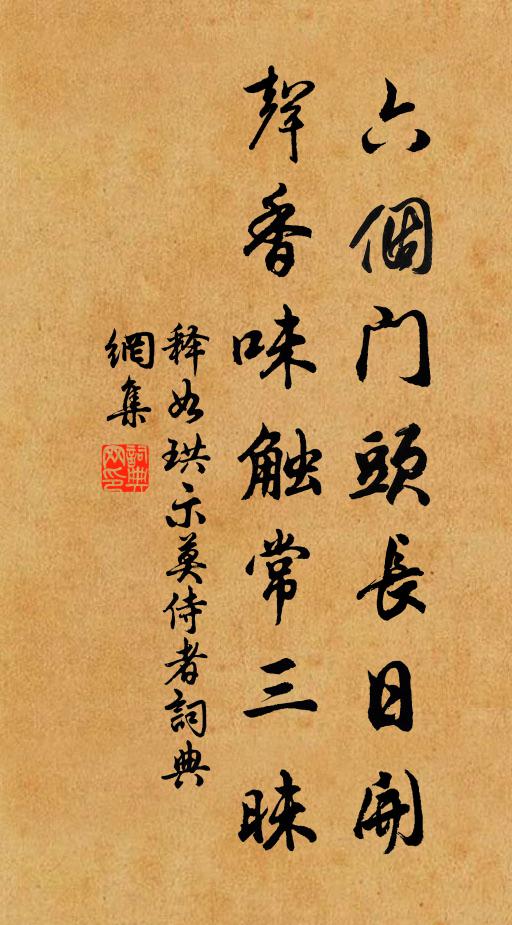 六個門頭長日開
聲香味触常三昧
释如珙示莫侍者詞典
網集
詞典網印